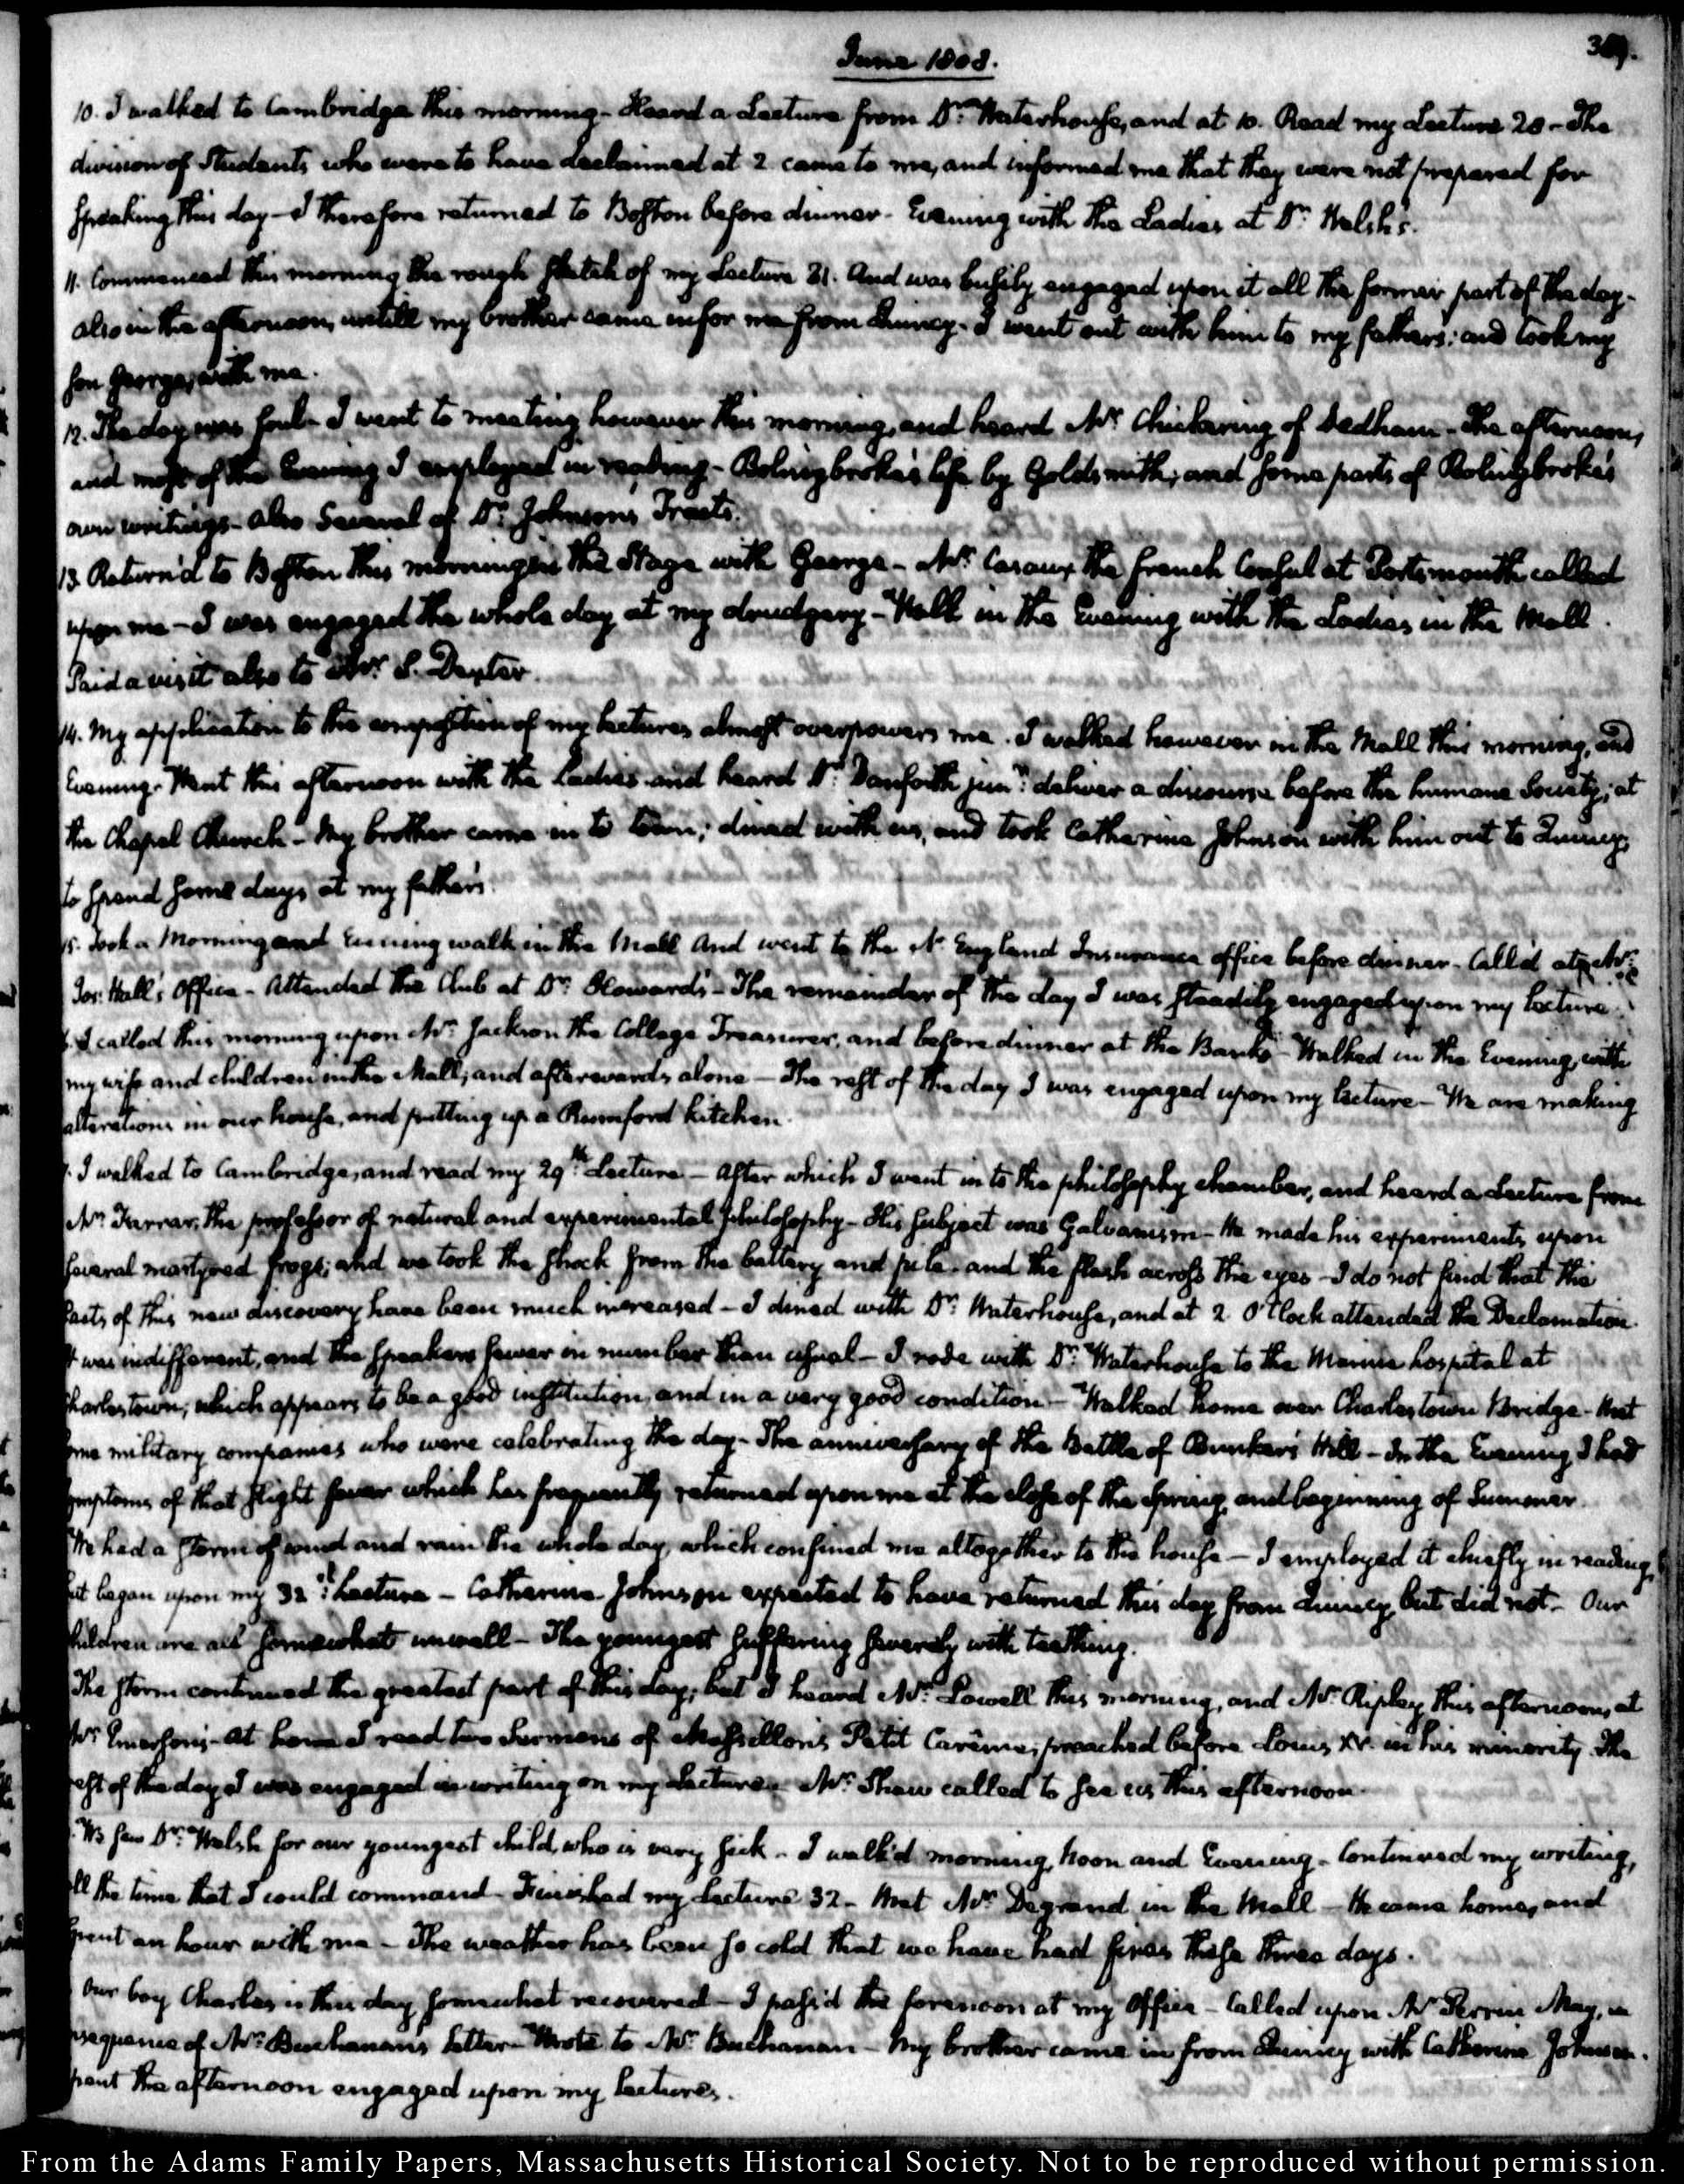 June 1808.
10. I walked to Cambridge this morning - Heard a Lecture from Dr. Waterhouse, and at 10. Read my Lecture 28 - The
division of Students who were to have declaimed at 2 came to me, and informed me that they were not prepared for
speaking this day - I therefore returned to Boston before dinner - Evening with the Ladies at Dr. Welsh's.
11. Commenced this morning the rough sketch of my Lecture 31. And was busily engaged upon it all the former part of the day -
also in the afternoon, untill my brother came in for me from Quincy - I went out with him to my father's: and took my
son George, with me.
12. The day was foul - I went to meeting however this morning, and heard Mr. Chickering of Dedham - The afternoon,
and most of the Evening I employed in reading - Bolingbroke's life by Goldsmith, and some parts of Bolingbroke's
own writings - also several of Dr. Johnson's Tracts.
13. Return'd to Boston this morning in the Stage with George - Mr. Cazaux the French Consul at Portsmouth called
upon me - I was engaged the whole day at my drudgery - Walk in the Evening with the Ladies in the Mall.
Paid a visit also to Mr. S. Dexter.
14. My application to the composition of my lectures almost overpowers me. I walked however in the Mall this morning, and
Evening. Went this afternoon with the Ladies and heard Dr. Danforth junr. deliver a discourse before the humane Society, at
the Chapel Church - My brother came in to town; dined with us, and took Catharine Johnson with him out to Quincy,
to spend some days at my father's.
15. Took a Morning and Evening walk in the Mall And went to the N. England Insurance office before dinner - Call'd at Mr.
Jos: Hall's Office - Attended the Club at Dr. Howard's - The remainder of the day I was steadily engaged upon my lecture.
I called this morning upon Mr. Jackson the College Treasurer, and before dinner at the Banks - Walked in the Evening, with
my wife and children in the Mall, and afterwards alone - The rest of the day I was engaged upon my lecture - We are making
alterations in our house, and putting up a Rumford kitchen.
I walked to Cambridge, and read my 29th. Lecture - After which I went in to the philosophy chamber, and heard a Lecture from
Mr. Farrar, the professor of natural and experimental philosophy - His subject was Galvanism - He made his experiments upon
several martyred frogs; and we took the shock from the battery and pile - and the flash across the eyes - I do not find that the
facts of this new discovery have been much increased - I dined with Dr. Waterhouse, and at 2 O'Clock attended the Declamation.
It was indifferent, and the speakers fewer in number than usual - I rode with Dr. Waterhouse to the Marine hospital at
Charlestown; which appears to be a good institution, and in a very good condition - Walked home over Charlestown Bridge - Met
some military companies who were celebrating the day - The anniversary of the Battle of Bunker's Hill - In the Evening I had
symptoms of that slight fever which has frequently returned upon me at the close of the Spring, and beginning of Summer.
We had a storm of wind and rain the whole day, which confined me altogether to the house - I employed it chiefly in reading,
but began upon my 32d. Lecture - Catherine Johnson expected to have returned this day from Quincy, but did not - Our
children are all somewhat unwell - The youngest suffering severely with teething.
The storm continued the greatest part of this day; but I heard Mr. Lowell this morning, and Mr. Ripley this afternoon, at
Mr. Emerson's - At home I read two Sermons of Massillon's Petit Carême, preached before Louis XV. in his minority. The
rest of the day I was engaged in writing on my Lecture. Mr. Shaw called to see us this afternoon.
We saw Dr. Welsh for our youngest child, who is very sick - I walk'd morning, noon and Evening - Continued my writing,
all the time that I could command - Finished my Lecture 32 - Met Mr. Degrand in the Mall - He came home, and
spent an hour with me - The weather has been so cold that we have had fires these three days.
Our boy Charles is this day somewhat recovered - I pass'd the forenoon at my Office - Called upon Mr. Perrin May, in
consequence of Mr. Buchanan's letter - Wrote to Mr. Buchanan - My brother came in from Quincy with Catherine Johnson.
spent the afternoon engaged upon my lectures.
From the Adams Family Papers, Massachusetts Historical Society. Not to be reproduced without permission.